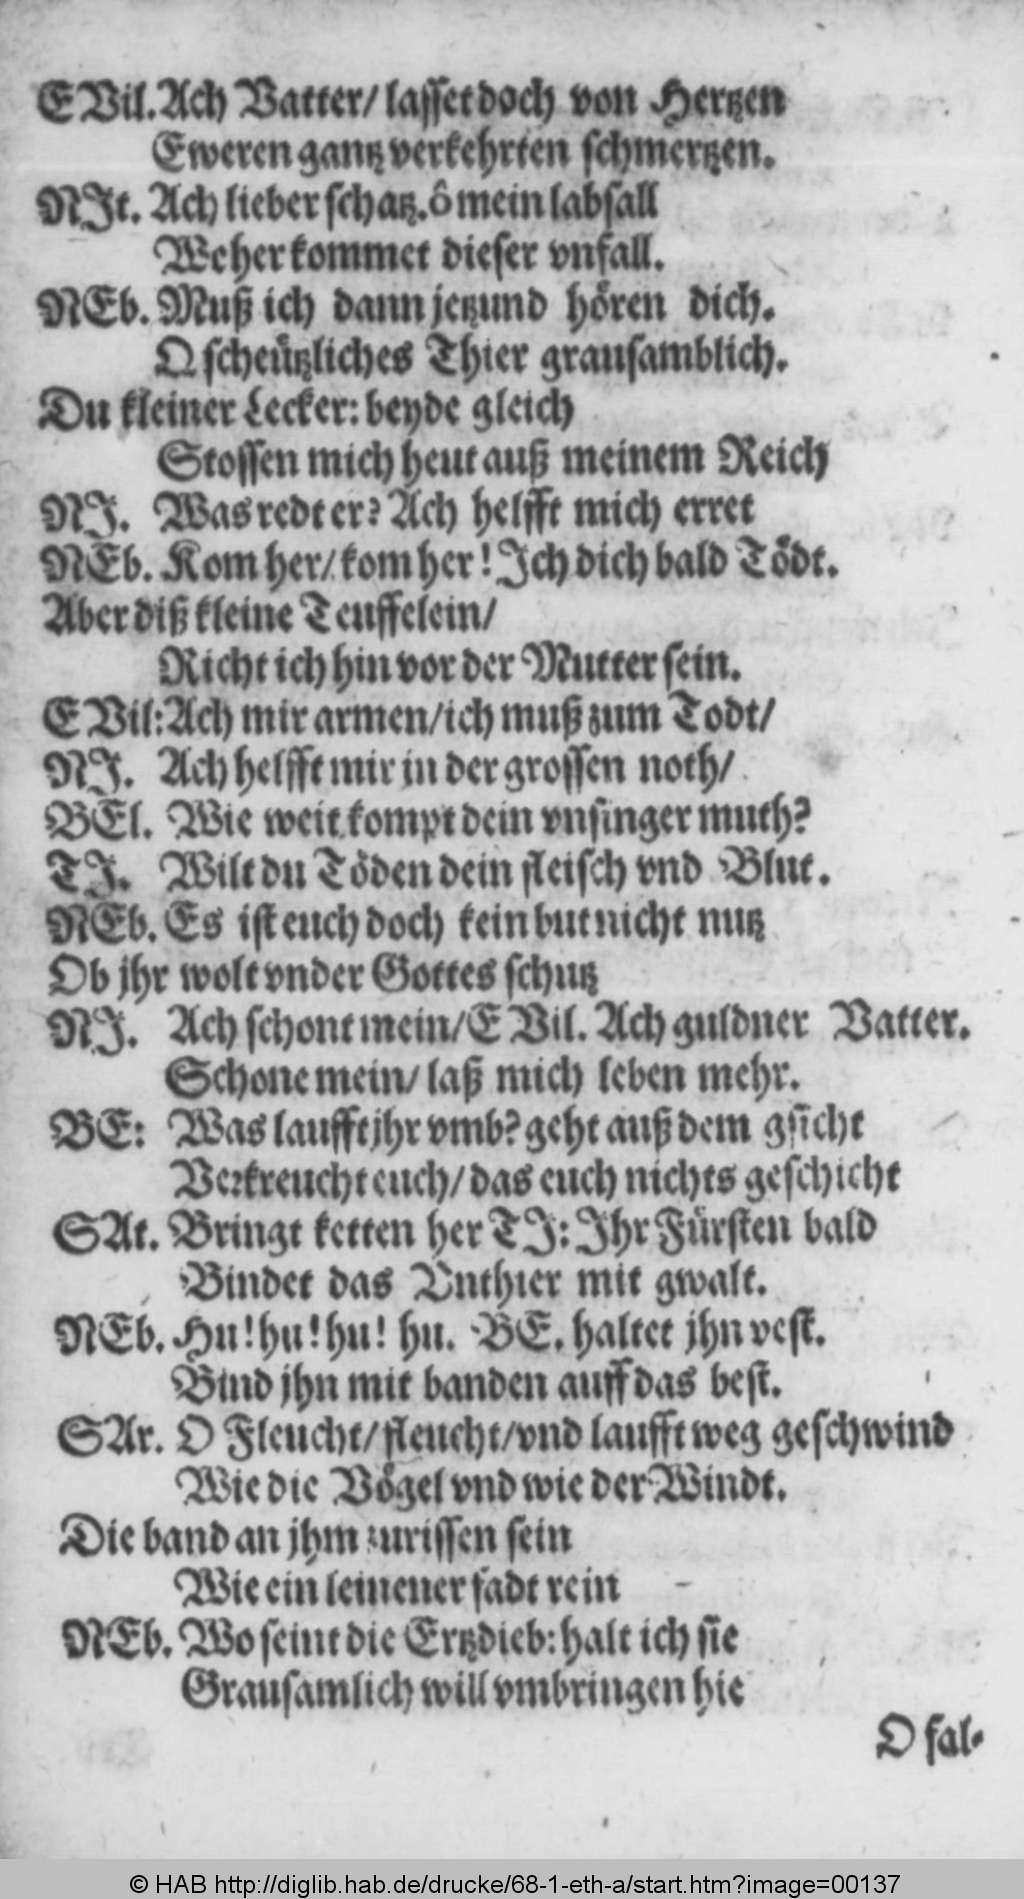 E Vil. Ach Vatter/ lasset doch von Hertzen
Eweren gantz verkehrten schmertzen.
NJt. Ach lieber schatz. ô mein labsall
Weher kommet dieser vnfall.
NEb. Muß ich dann jetzund hören dich.
O scheützliches Thier grausamblich.
Du kleiner Lecker: beyde gleich
Stossen mich heut auß meinem Reich
NJ. Was redt er? Ach helfft mich erret
NEb. Kom her/ kom her! Jch dich bald Tödt.
Aber diß kleine Teuffelein/
Richt ich hin vor der Mutter sein.
E Vil: Ach mir armen/ ich muß zum Todt/
NJ. Ach helfft mir in der grossen noth/
BEl. Wie weit kompt dein vnsinger muth?
TJ. Wilt du Töden dein fleisch vnd Blut.
NEb. Es ist euch doch kein but nicht nutz
Ob jhr wolt vnder Gottes schutz
NJ. Ach schont mein/ E Vil. Ach guldner Vatter.
Schone mein/ laß mich leben mehr.
BE: Was laufft jhr vmb? geht auß dem gsicht
Verkreucht euch/ das euch nichts geschicht
SAt. Bringt ketten her TJ: Jhr Fürsten bald
Bindet das Vnthier mit gwalt.
NEb. Hu! hu! hu! hu. BE. haltet jhn vest.
Bind jhn mit banden auff das best.
SAr. O Fleucht/ fleucht/ vnd laufft weg geschwind
Wie die Vögel vnd wie der Windt.
Die band an jhm zurissen sein
Wie ein leinener fadt rein
NEb. Wo seint die Ertzdieb: halt ich sie
Grausamlich will vmbringen hie
O fal-
© HAB http://diglib.hab.de/drucke/68-1-eth-a/start.htm?image=00137